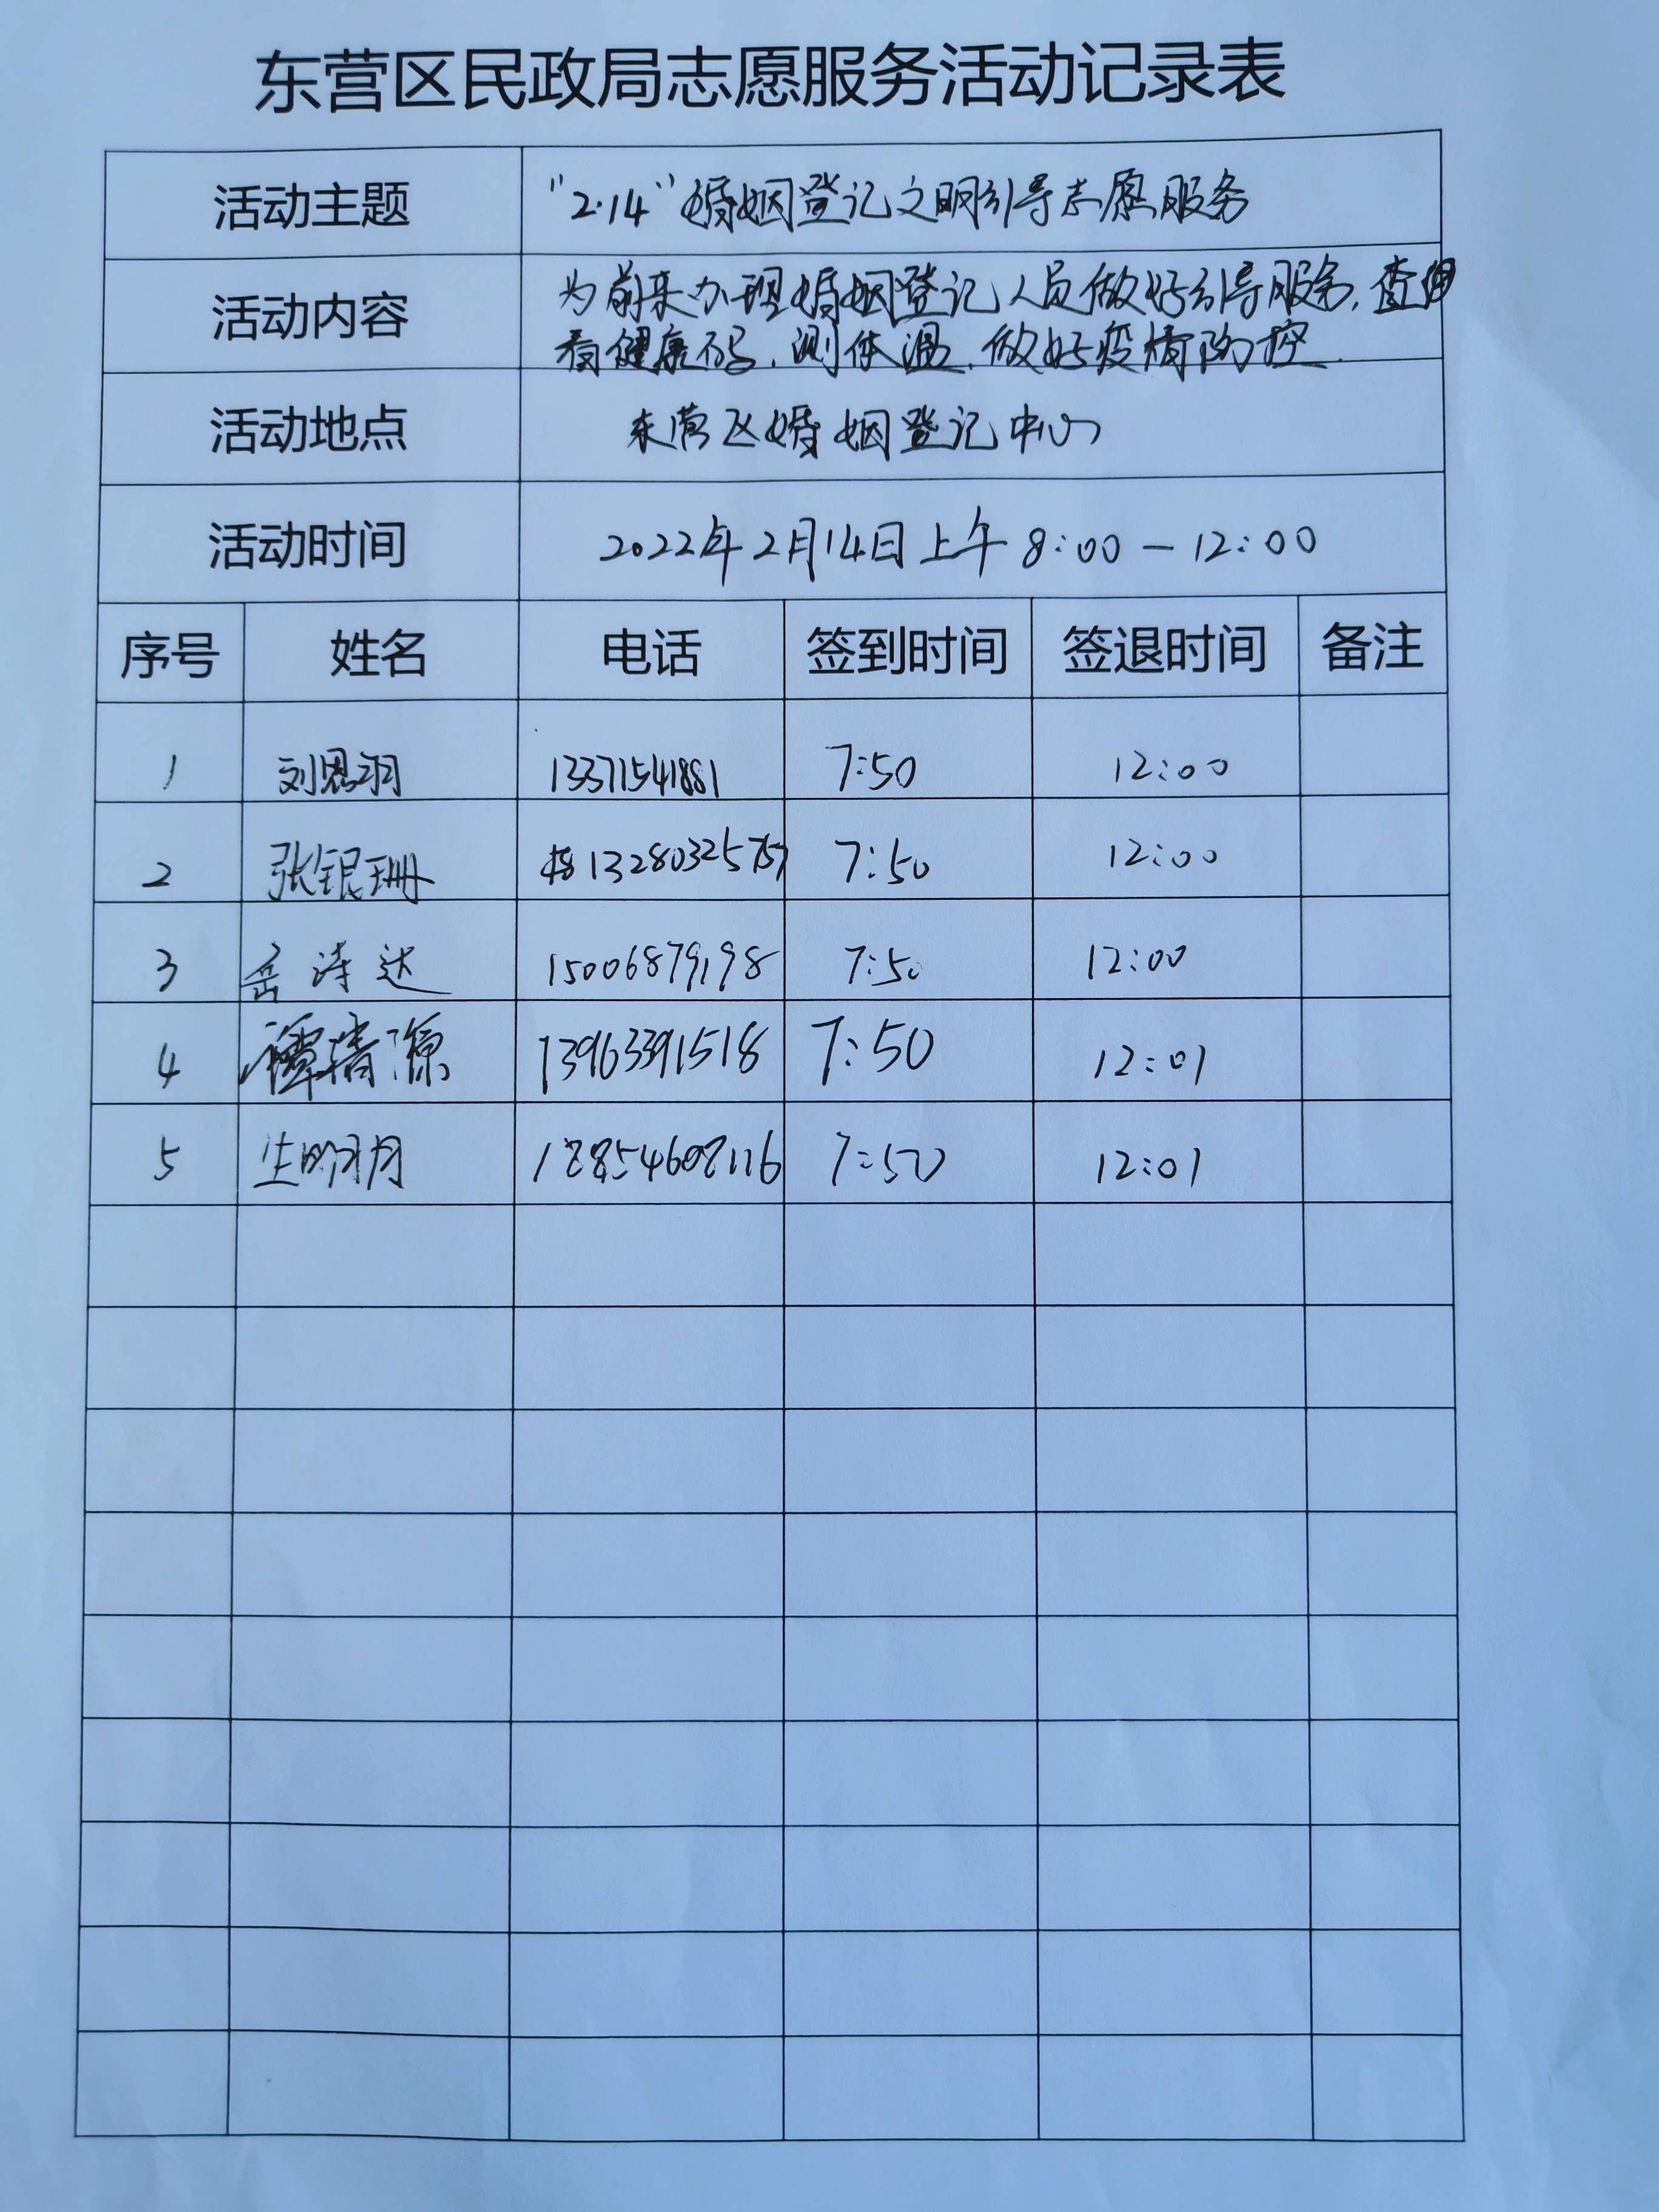 东营区民政局志愿服务活动记录表
活动主题 "2.14"婚姻登记文明引导志愿服务
活动内容 为前来办理婚姻登记人员做好引导服务,查
看健康码,测体温,做好疫情防控.
活动地点 东营区婚姻登记中心
活动时间 2022年2月14日上午8:00-12:00
序号 姓名 电话 签到时间 签退时间 备注
1 刘恩羽 13371541881 7:50 12:00
2 张银珊 13280325757 7:50 12:00
3 岳涛达 15006879198 7:50 12:00
4 谭清源 13963391518 7:50 12:01
5 生明月 18854608116 7:50 12:01